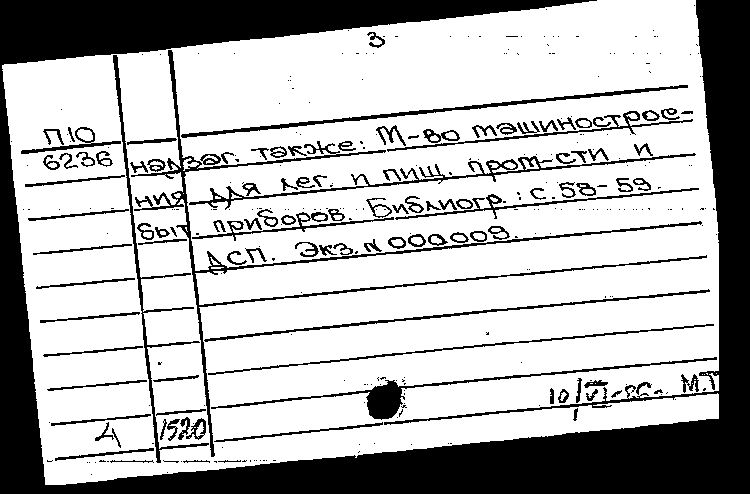 3
П10
6236 надзаг. также: М-во машинострое-
ния для лег. и пищ. пром-сти и
быт. приборов. Библиогр.: с. 58-59.
ДСП. Экз. N 000009.
10/VI-86- М.Т
Д 1520